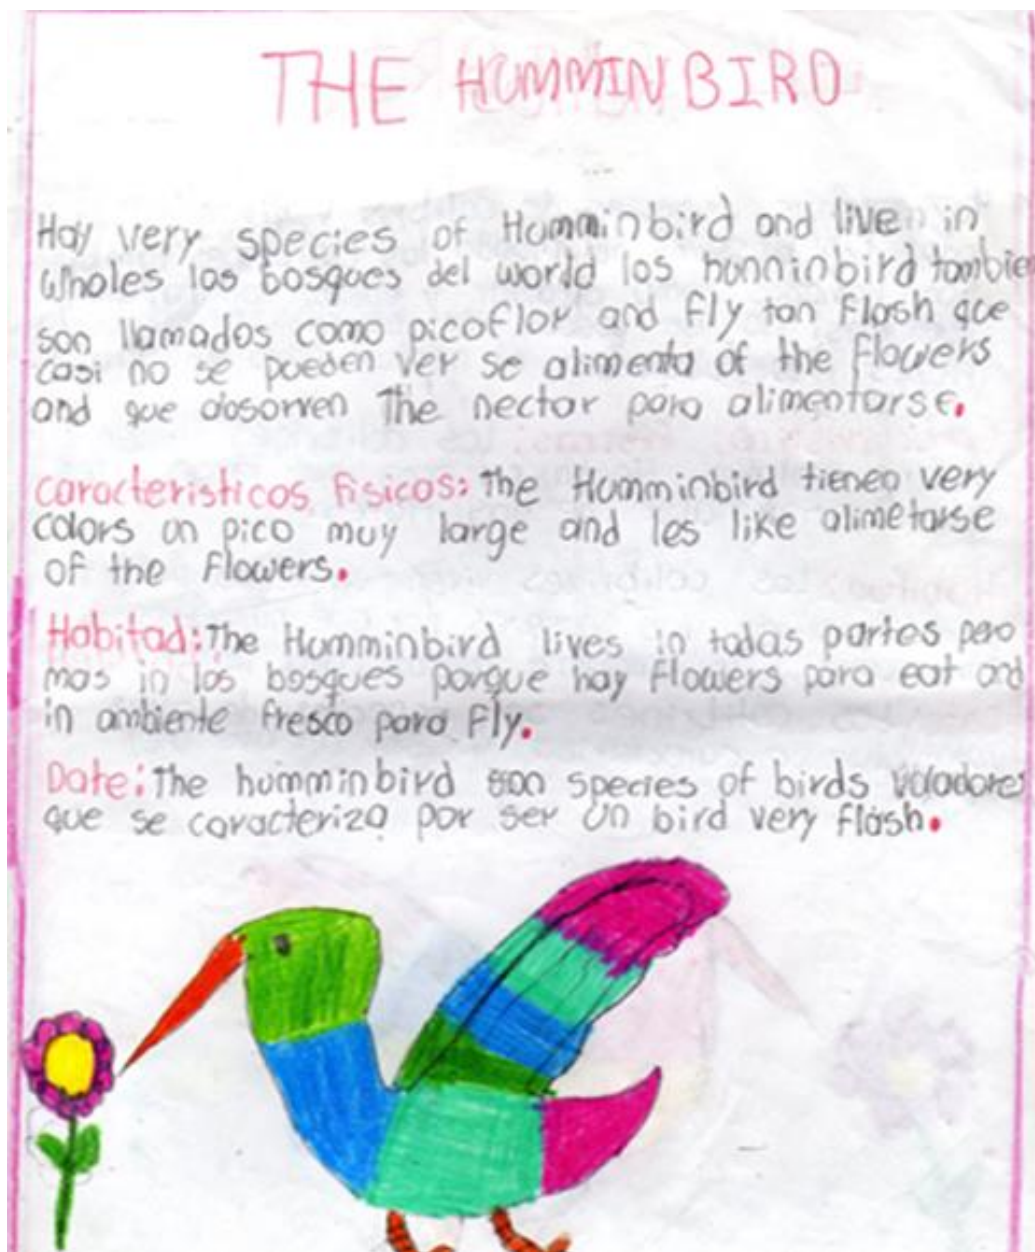 THE HUMMINBIRD
Hay very species of Humminbird and live in
wholes los bosques del world los hunninbird tambie
son llamados como picoflor and fly tan flash que
casi no se pueden ver se alimenta of the flowers
and que absorven The nectar para alimentarse.
caracteristicos fisicos: The Humminbird tienen very
colors un pico muy large and les like alimetarse
of the flowers.
Habitad: The Humminbird lives in todas partes pero
mas in los bosques porque hay flowers para eat and
in ambiente fresco para Fly.
Date: The humminbird son species of birds voladores
que se caracteriza por ser un bird very flash.